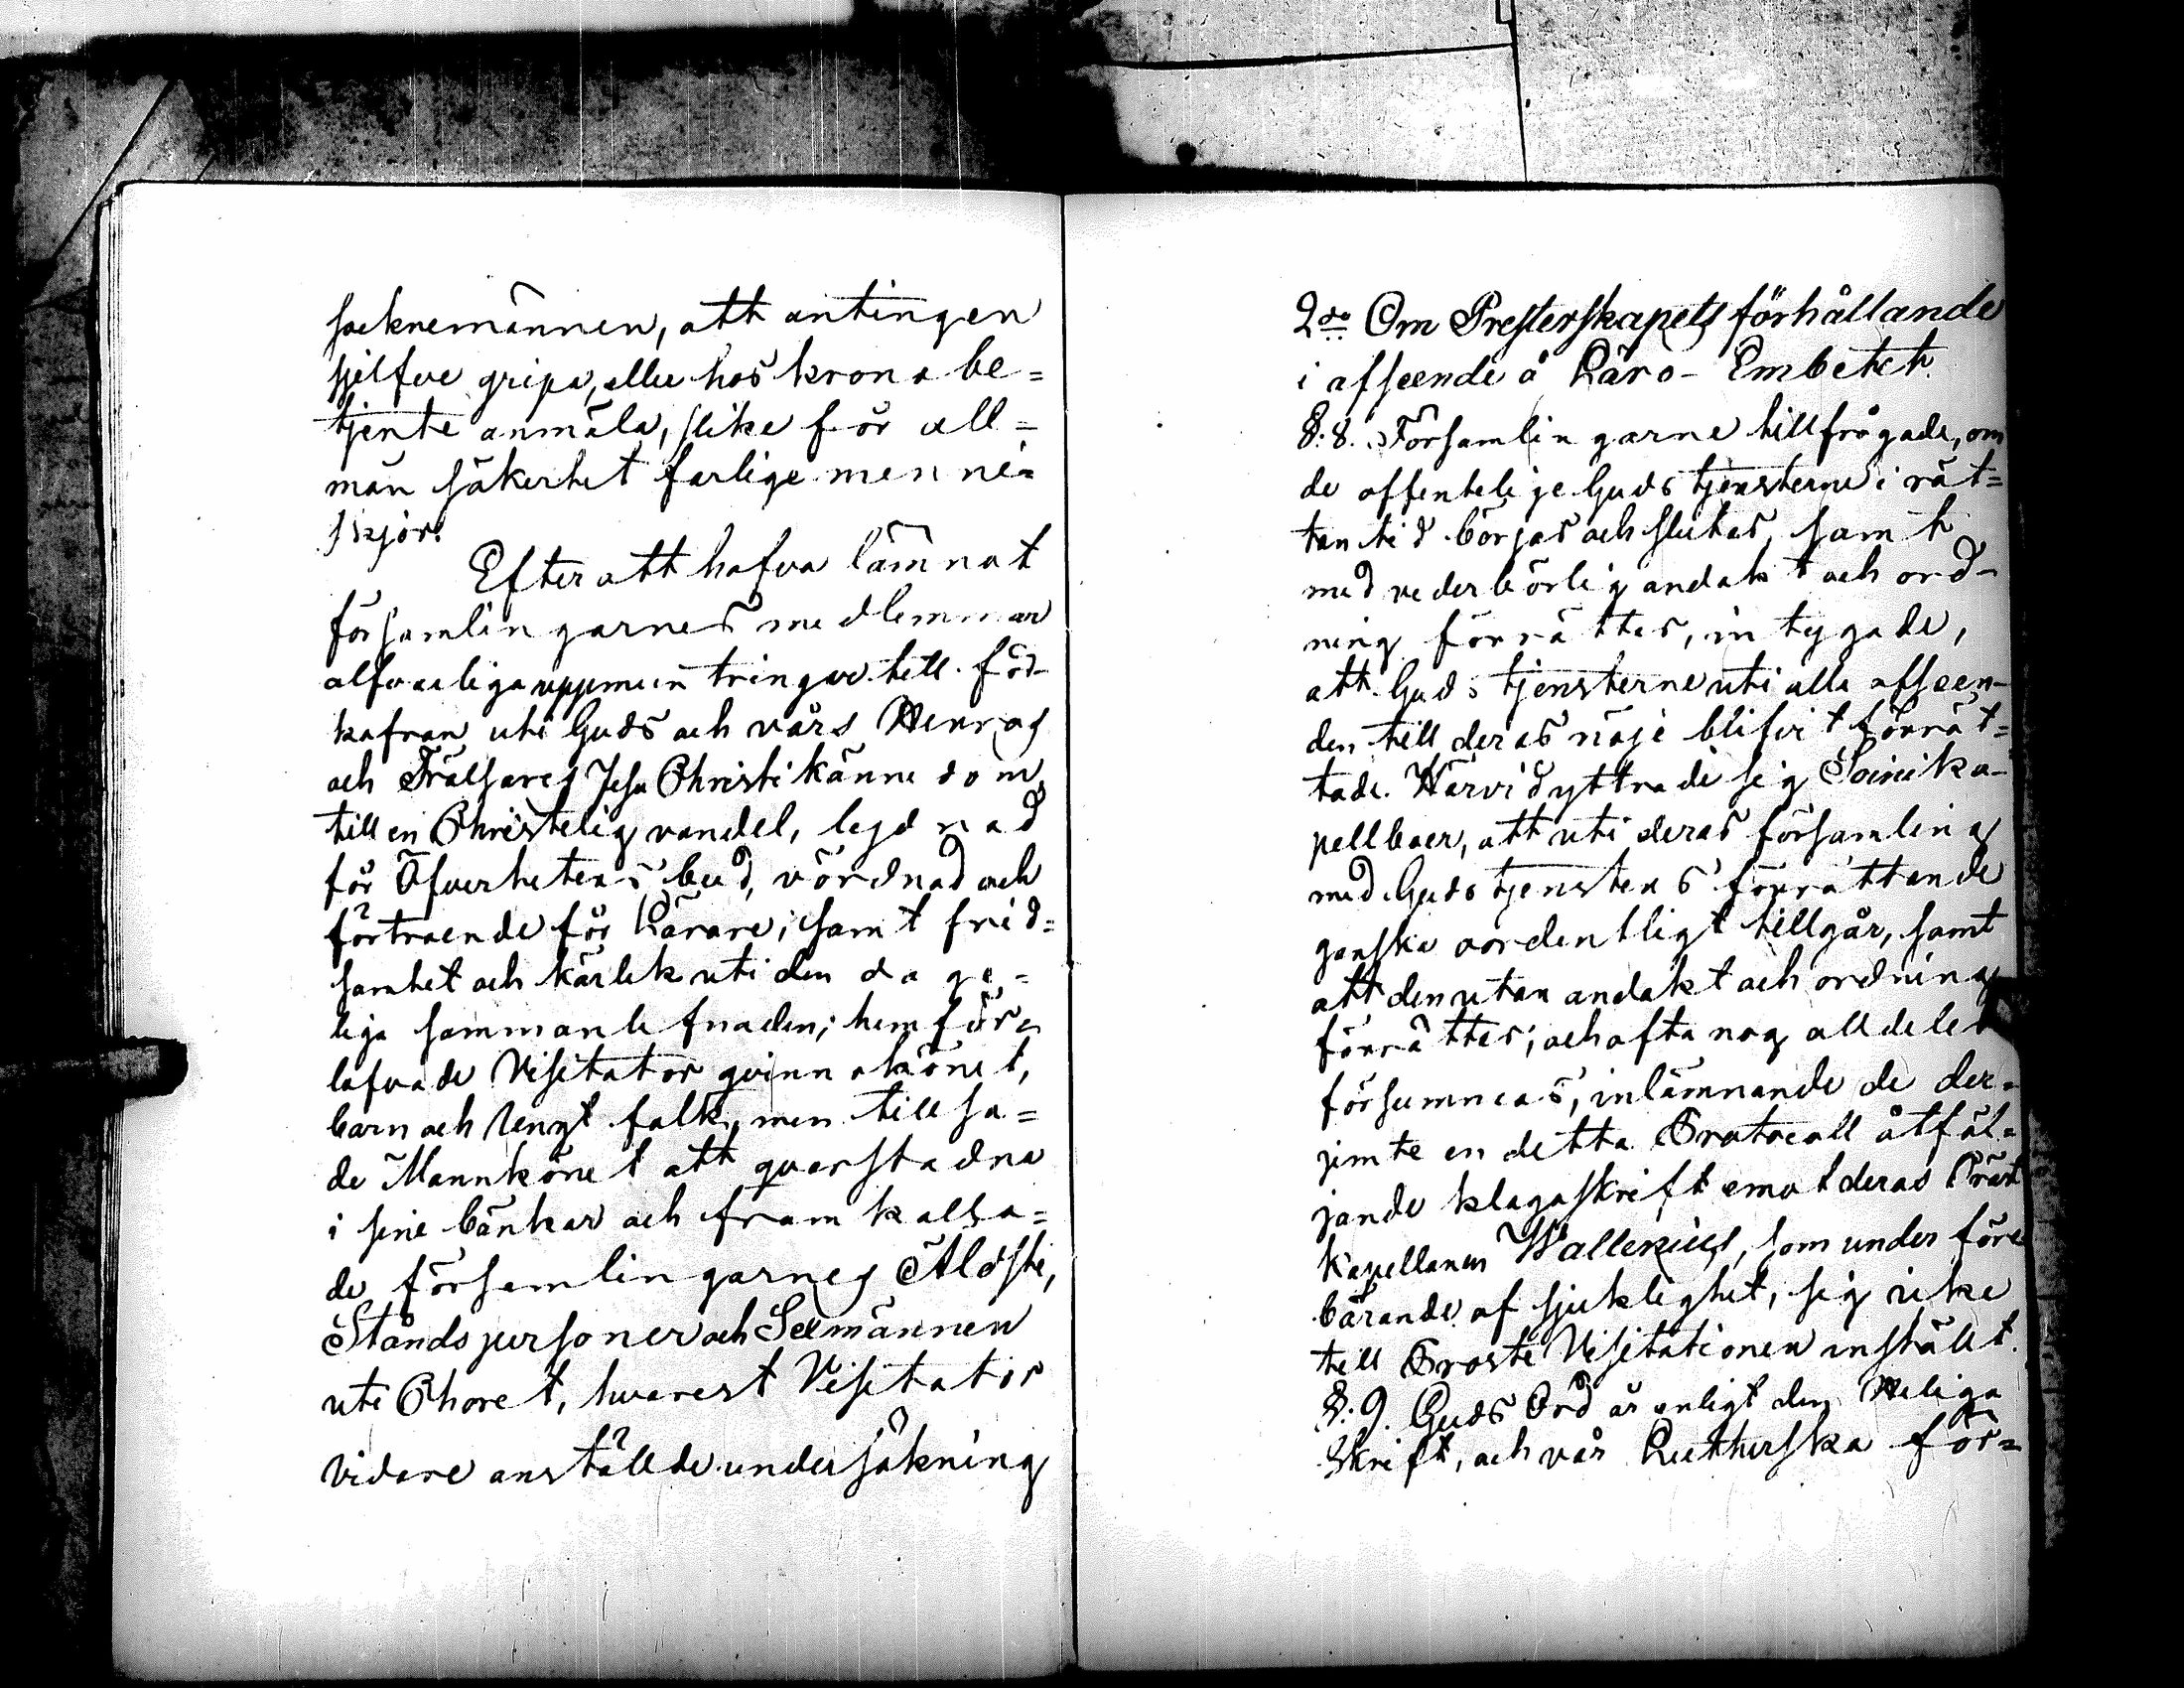 socknemännen, att antingen
sjelfve gripa, eller hos krono be=
tjente anmäla, slike för all=
män säkerhet farlige menni=
skjor.
Efter att hafva lämnat
församlingarnes medlemmar
alfvarliga uppmuntringar till för-
kofran uti Guds och vårs Herras
och Frälsares Jesu Christi kännedom,
till en Christelig vandel, lydnad
för Öfverhetens bud, vördnad och
förtroende för Lärare, samt frid=
samhet och kärlek uti den dage=
liga sammanlefnaden; hemför=
lofvade Visitator qvinnokönet,
barn och Ungt folk, men tillsa=
de Mannkönet att qvarstadna
i sine bänkar och framkalla=
de församlingarnes Äldste,
Ståndspersoner och Sexmännen
uti Choret, hvarest Visitator
vidare anställde undersökning
2do Om Presterskapets förhållande
i afseende å Läro-Embetet.
§.8. Församlingarne tillfrågade, om
de offentelige Gudstjensterne i rät=
tan tid börjas och slutas, samt
med vederbörlig andakt och ord-
ning förrättes, intygade,
att Gudstjensterne uti alla afseen-
den till deras nöje blifvit förrät=
tade. Härvid yttrade sig Soini ka-
pellboer, att uti deras församling
med Gudstjenstens förrättande
ganska oordentligt tillgår, samt
att den utan andakt och ordning
förrättes; och ofta nog alldeles
försummas, inlämnande de der=
jemte en detta Protocoll åtföl=
jande klagoskrift emot deras Präst
Kapellanen Wallenius, som under före
bärande af sjuklighet, sig icke
till Proste Visitationen inställt.
§.9. Guds Ord är enligt den Heliga
Skrift, och vår Lutherska för=